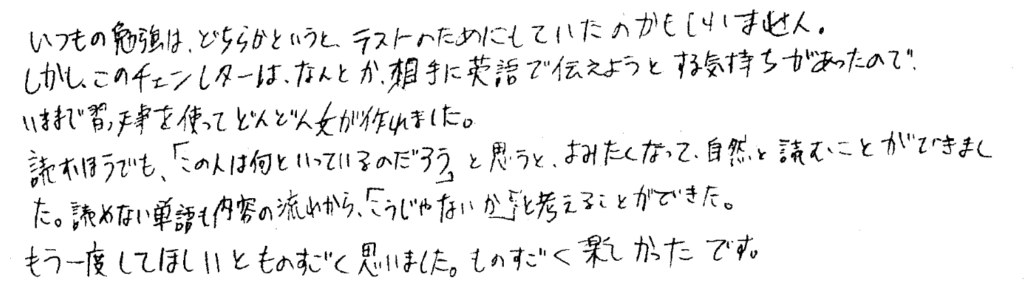 いつもの勉強は、どちらかというと、テストのためにしていたのかもしれません。
しかし、このチェンレターは、なんとか、相手に英語で伝えようとする気持ちがあったので、
いままで習った事を使ってどんどん文が作れました。
読むほうでも、「この人は何といっているのだろう」と思うと、よみたくなって、自然と読むことができまし
た。読めない単語も内容の流れから、「こうじゃないか」と考えることができた。
もう一度してほしいとものすごく思いました。ものすごく楽しかったです。